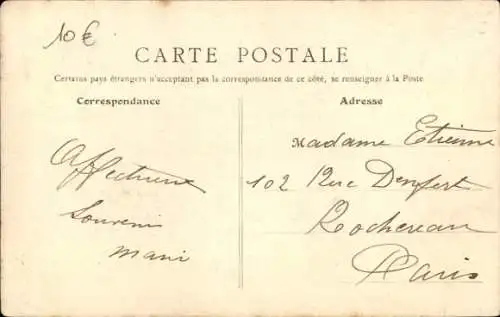 10 €
CARTE POSTALE
Certains pays étrangers n'acceptant pas la correspondance de ce côté, se renseigner à la Poste
Correspondance
Affectueux
Souvenir
Mani
Adresse
Madame Etienne
102 Rue Denfert
Rochereau
Paris